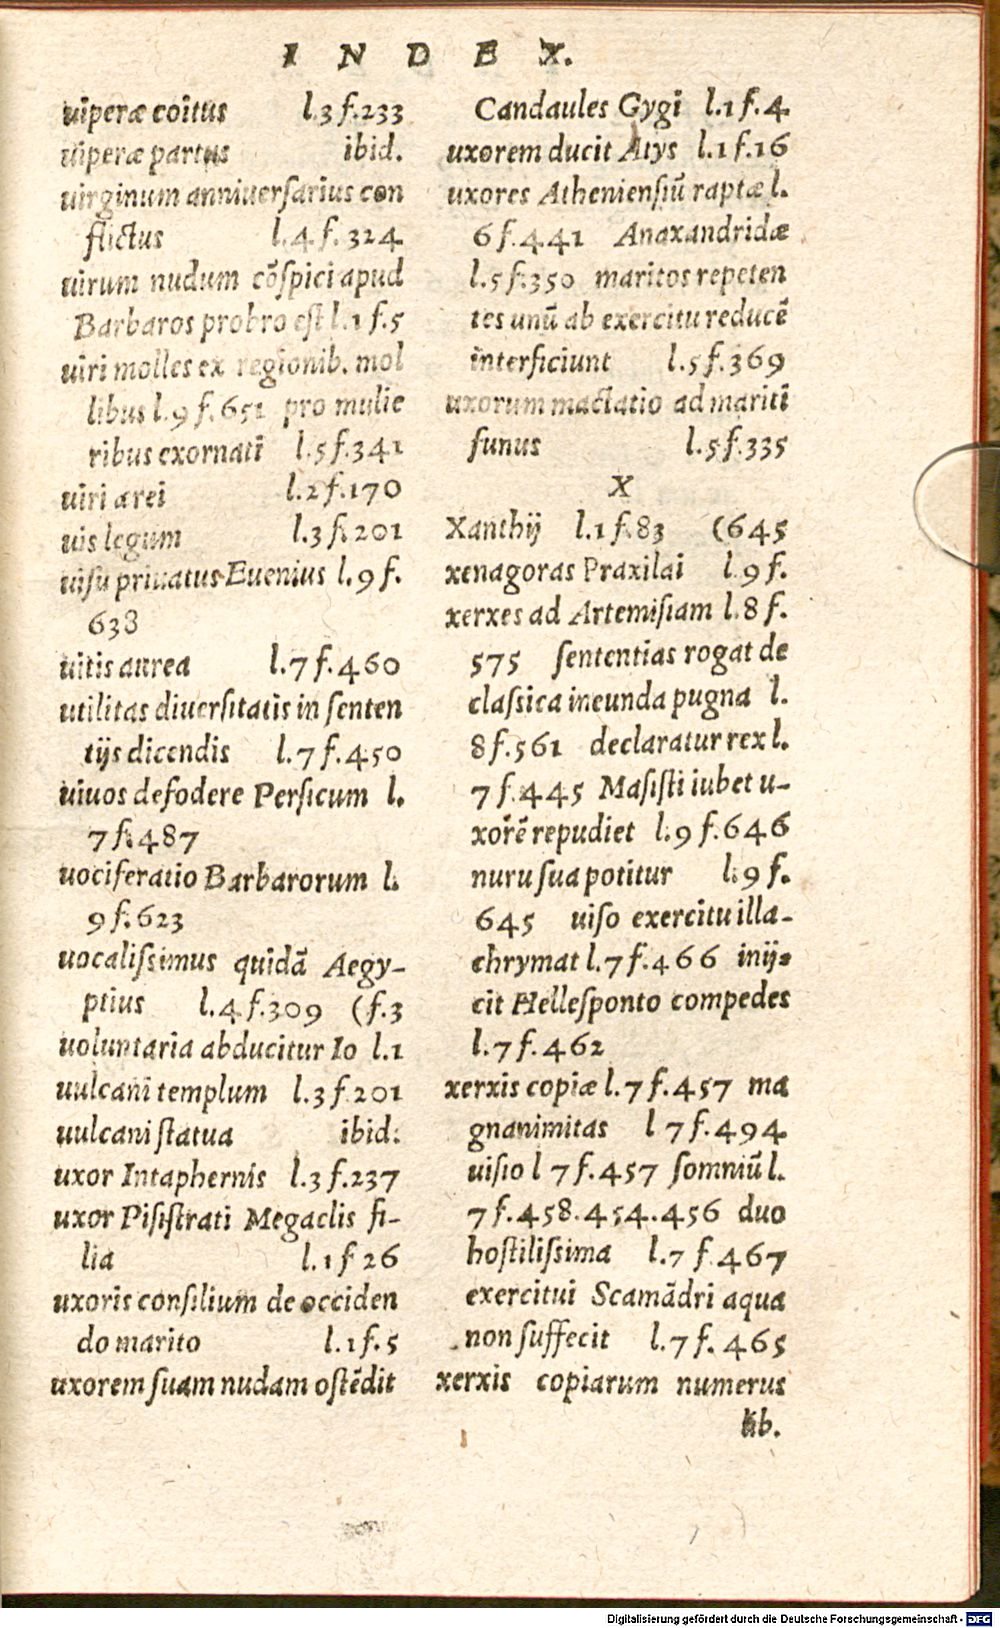 INDEX.
uiperæ coitus l.3 f.233
uiperæ partus ibid.
uirginum anniuerſarius con
flictus l.4 f. 324
uirum nudum cõſpici apud
Barbaros probro eſt l.1 f.5
uiri molles ex regionib. mol
libus l.9 f.651 pro mulie
ribus exornati l.5 f.341
uiri ærei l.2 f.170
uis legum l.3 f.201
uiſu priuatus Euenius l.9 f.
638
uitis aurea l.7 f.460
utilitas diuerſitatis in ſenten
tijs dicendis l.7 f.450
uiuos defodere Perſicum l.
7 f.487
uociferatio Barbarorum l.
9 f.623
uocaliſsimus quidã Aegy-
ptius l.4 f.309 (f.3
uoluntaria abducitur Io l.1
uulcani templum l.3 f.201
uulcani ſtatua ibid.
uxor Intaphernis l.3 f.237
uxor Piſiſtrati Megaclis fi-
lia l.1 f 26
uxoris conſilium de occiden
do marito l.1 f.5
uxorem ſuam nudam oſtẽdit
Candaules Gygi l.1 f.4
uxorem ducit Atys l.1 f.16
uxores Athenienſiũ raptæ l.
6 f.441 Anaxandridæ
l.5 f.350 maritos repeten
tes unũ ab exercitu reducẽ
interficiunt l.5 f.369
uxorum mactatio ad mariti
funus l.5 f.335
X
Xanthij l.1 f.83 (645
xenagoras Praxilai l.9 f.
xerxes ad Artemiſiam l.8 f.
575 ſententias rogat de
claſsica ineunda pugna l.
8 f.561 declaratur rex l.
7 f.445 Maſiſti iubet u-
xorẽ repudiet l.9 f.646
nuru ſua potitur l.9 f.
645 uiſo exercitu illa-
chrymat l.7 f.466 inij-
cit Helleſponto compedes
l.7 f.462
xerxis copiæ l.7 f.457 ma
gnanimitas l 7 f.494
uiſio l 7 f.457 ſomniũ l.
7 f.458.454.456 duo
hoſtiliſsima l.7 f.467
exercitui Scamãdri aqua
non ſuffecit l.7 f. 465
xerxis copiarum numerus
lib.
Digitalisierung gefördert durch die Deutsche Forschungsgemeinschaft - DFG